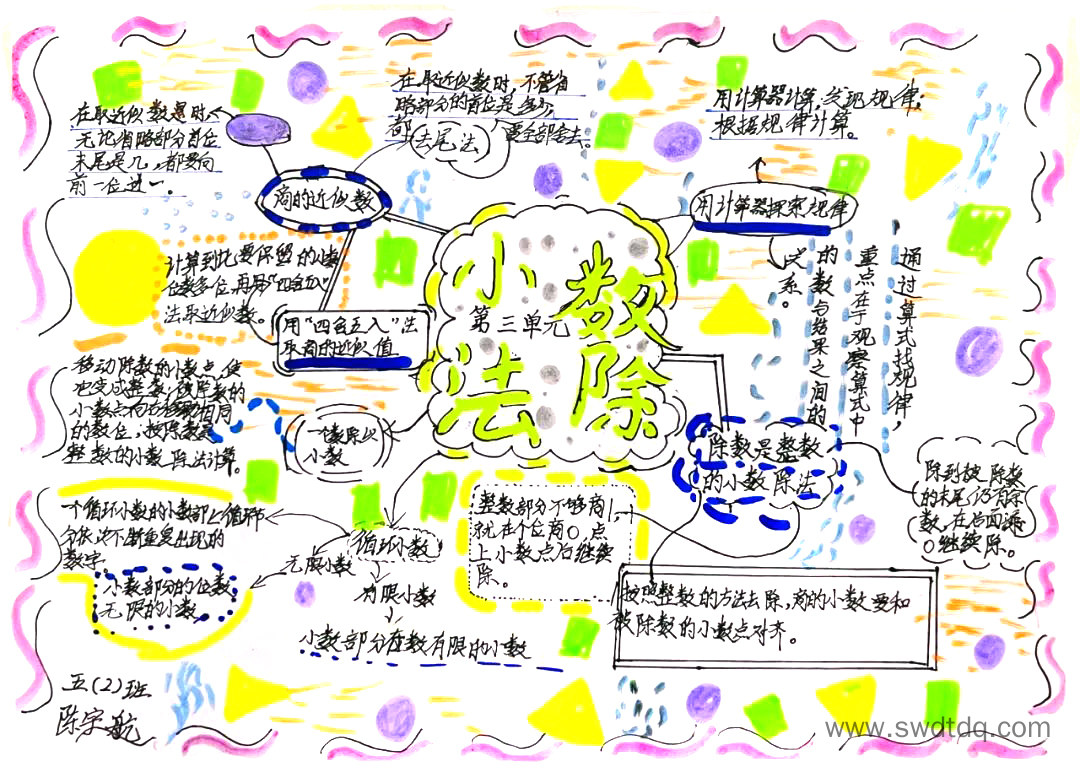 小数
第三单元
除法
商的近似数
在取近似数是时
无论省略部分首位
末尾是几,都要向
前一位进一。
在取近似数时,不管省
略部分的首位是多少,
都
要全部舍去。
去尾法
用计算器探索规律
用计算器计算,发现规律;
根据规律计算。
通过算式找规律,
重点在于观察算式中
的数与结果之间的
关系。
用“四舍五入”法
取商的近似值
计算到比要保留的小数
位数多一位,再用“四舍五入”
法取近似数。
一个数除以
小数
移动除数的小数点,使
它变成整数;被除数的
小数点向右移动相同
的数位,按除数是
整数的小数除法计算。
循环小数
一个循环小数的小数部
依次不断重复出现的
数字。
无限小数
小数部分的位数
无限的小数
有限小数
小数部分位数有限的小数
除数是整数
的小数除法
整数部分不够商1,
就在个位商0,点
上小数点后继续
除。
除到被除数
的末尾仍有余
数,在后面添
0继续除。
按照整数的方法去除,商的小数要和
被除数的小数点对齐。
五(2)班
陈宇航
www.swdtdq.com